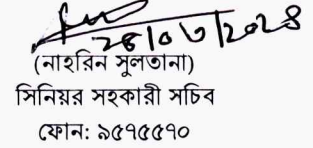 ২৪/০৩/২০২৪
(নাহরিন সুলতানা)
সিনিয়র সহকারী সচিব
ফোন: ৯৫৭৫৫৭০